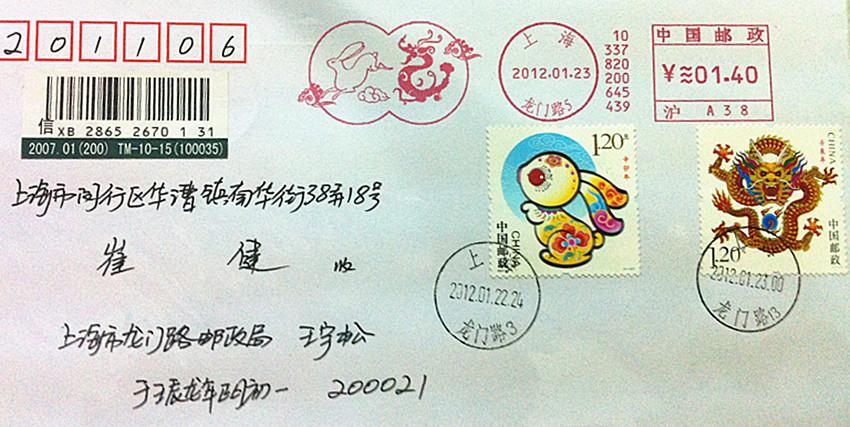 201106
上海
2012.01.23
龙门路5
10
337
820
200
645
439
中国邮政
¥≋01.40
沪 A38
信 XB 2865 2670 1 31
2007.01(200) TM-10-15(100035)
1.20元
辛卯年
中国邮政
CHINA
CHINA
壬辰年
1.20元
中国邮政
上海市闵行区华漕镇南华街38弄18号
崔 健 收
上
2012.01.22.24
龙门路3
2012.01.23.00
龙门路13
上海市龙门路邮政局 王宇松
于壬辰龙年正月初一 200021